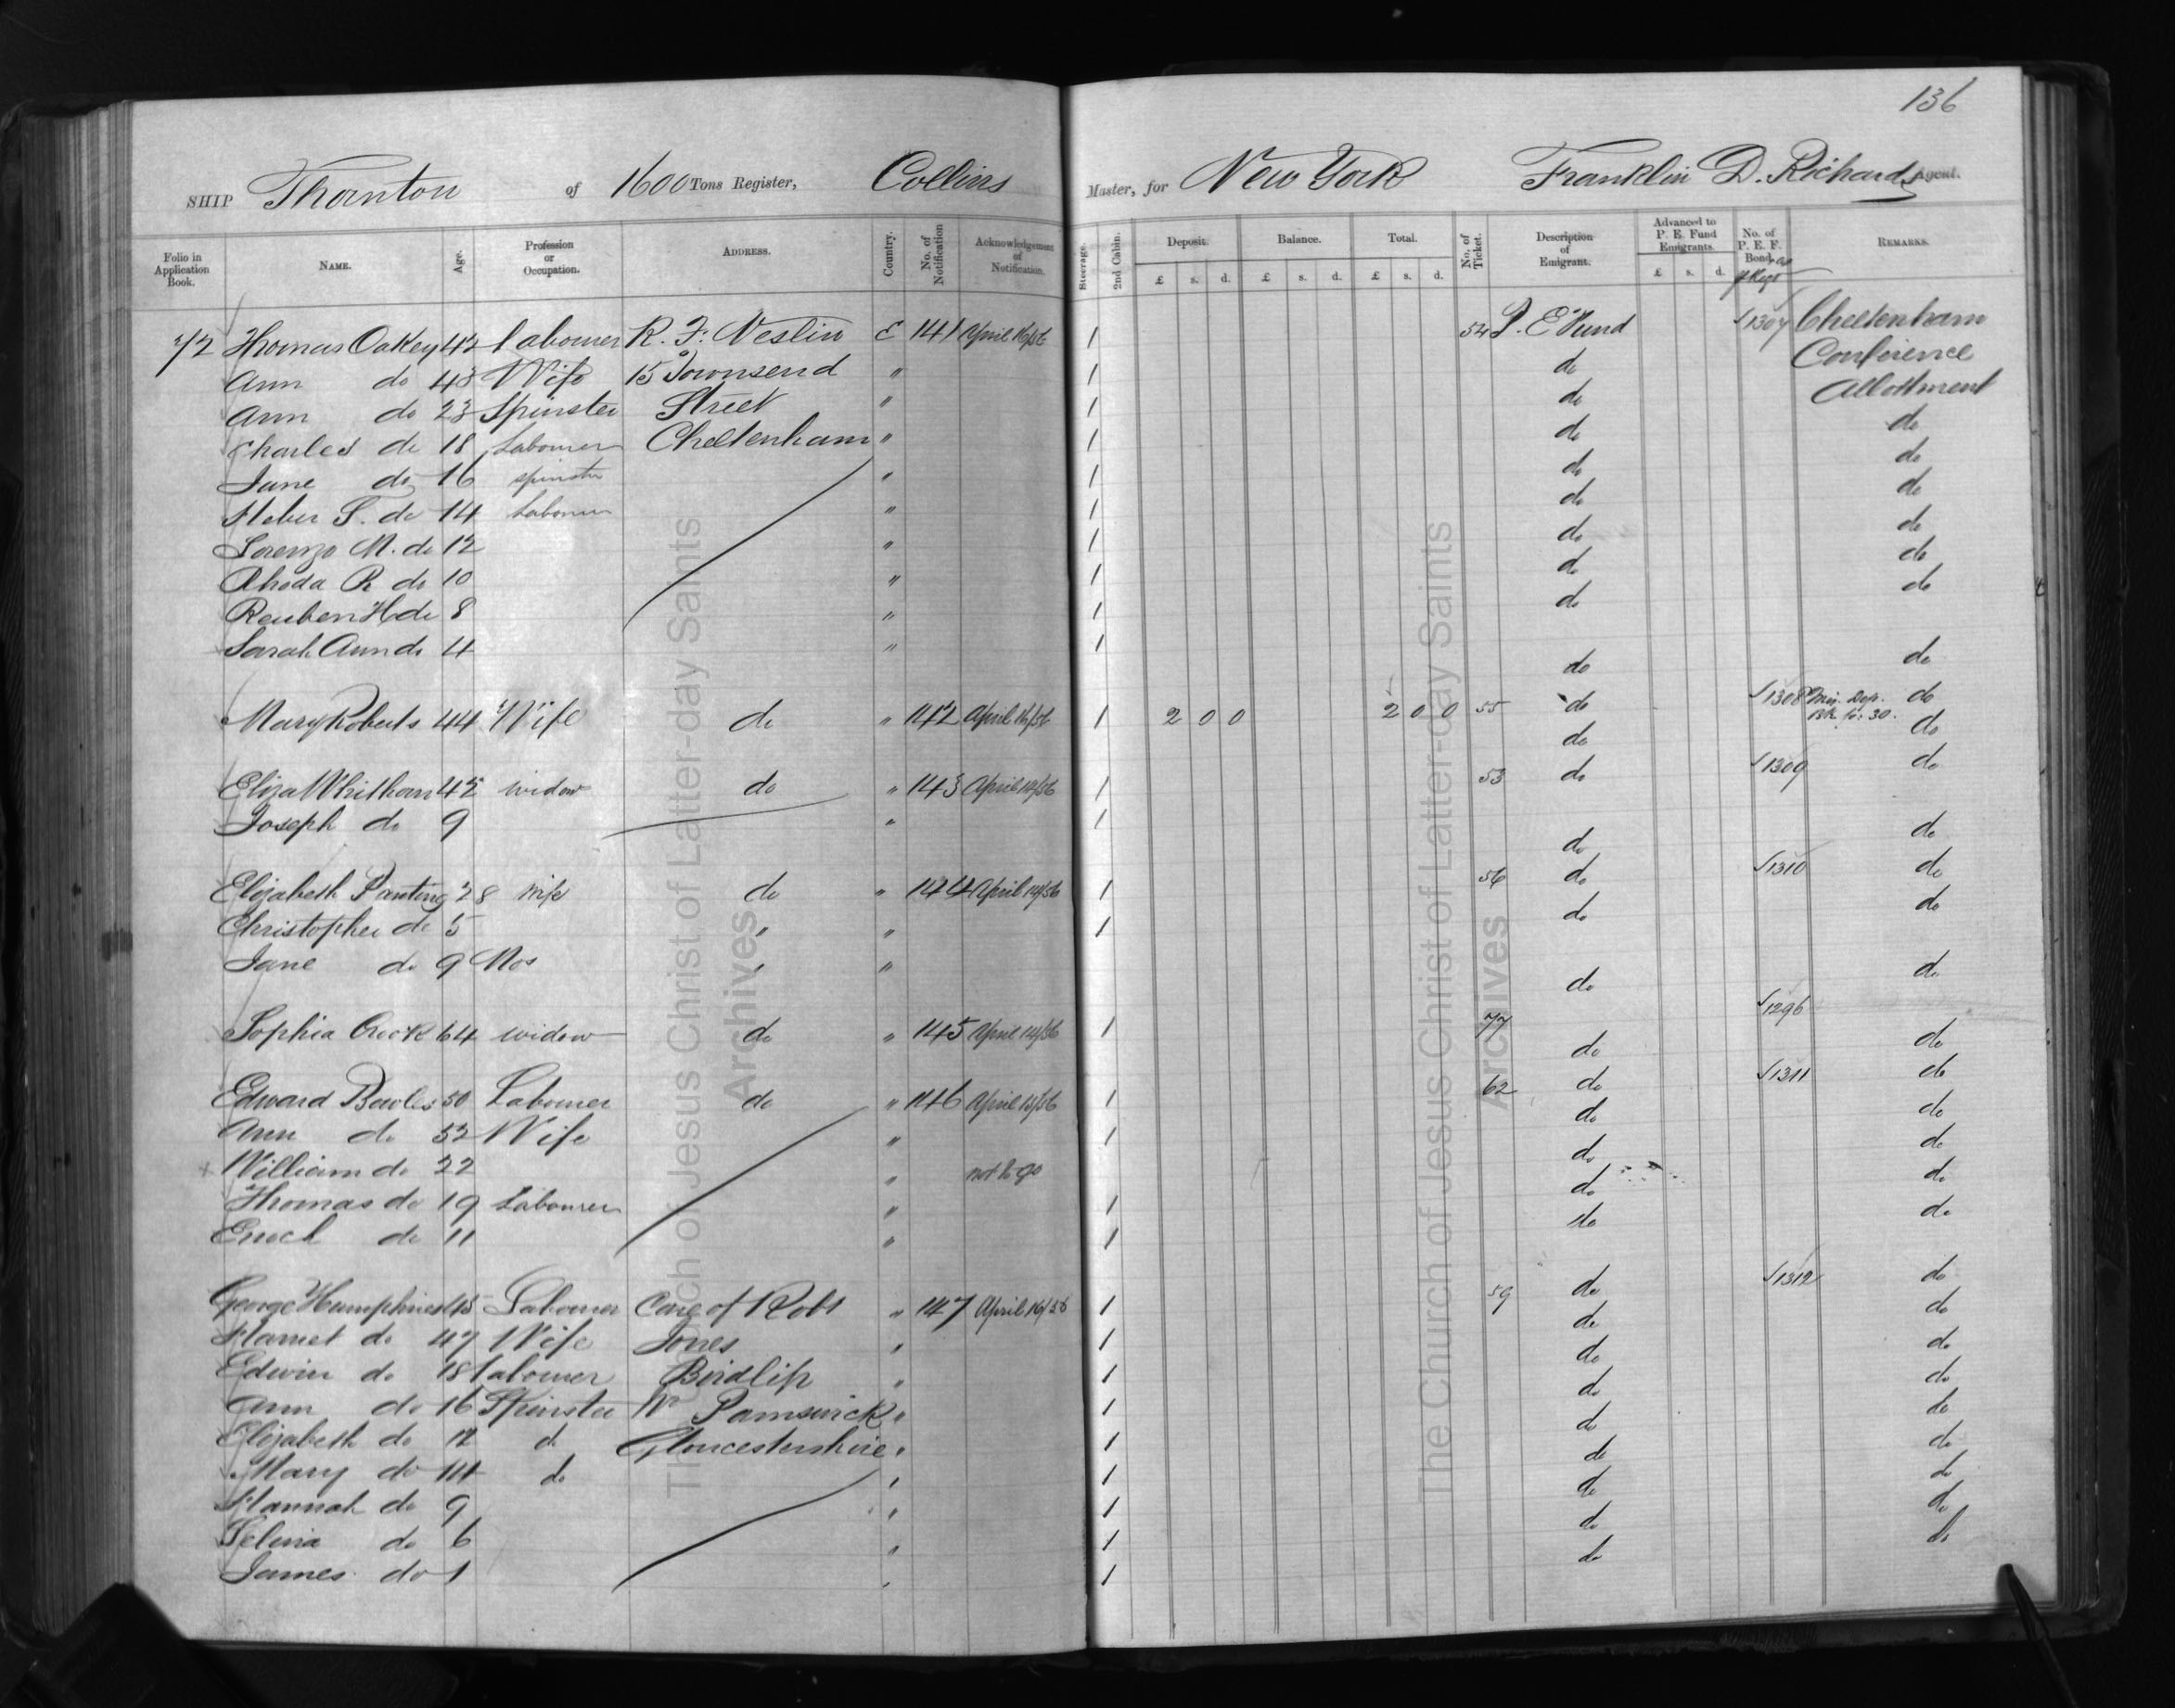 136
SHIP Thornton of 1600 Tons Register, Collins Master, for New York Franklin D. Richards Agent.
Folio in Application Book. NAME. Age. Profession or Occupation. ADDRESS. Country. No. of Notification Acknowledgement of Notification. Steerage. 2nd Cabin. Deposit. Balance. Total. No. of Ticket. Description of Emigrant. Advanced to P. E. Fund Emigrants. No. of P. E. F. Bond. REMARKS.
£ s. d. £ s. d. £ s. d. £ s. d.
72 Thomas Oakey 42 Labourer R. F. Neslin E 141 April 16/56 1 54 P. E. Fund √1307 Cheltenham
Ann do 43 Wife 15 Townsend " 1 do Conference
Ann do 23 Spinster Street " 1 do Allottment
Charles do 18 Labourer Cheltenham " 1 do do
Jane do 16 spinster " 1 do do
Heber T. do 14 Labourer " 1 do do
Lorenzo M. do 12 " 1 do do
Rhoda R do 10 " 1 do do
Reuben H do 8 " 1 do do
Sarah Ann do 4 " 1 do do
Mary Roberts 44 Wife do " 142 April 16/56 1 2 0 0 2 0 0 55 do √1308 Min. Dep. do
Bk fo: 30. do do
Eliza Whithorn 42 widow do " 143 April 14/56 1 53 do √1309 do
Joseph do 9 " 1 do do
Elizabeth Panting 28 wife do " 144 April 14/56 1 56 do √1310 do
Christopher do 5 " " 1 do do
Jane do 9 Mos " " do do
Sophia Crook 64 widow do " 145 April 14/56 1 77 do √1296 do
Edward Bowles 50 Labourer do " 146 April 15/56 1 62 do √1311 do
Ann do 52 Wife " 1 do do
+ William do 22 " not to go do do
Thomas do 19 Labourer " 1 do do
Enoch do 11 " 1 do do
George Humphries 45 Labourer Care of Robt " 147 April 16/56 1 59 do √1312 do
Harriet do 47 Wife Jones " 1 do do
Edwin do 18 Labourer Birdlip " 1 do do
Ann do 16 Spinster Nr Painswick " 1 do do
Elizabeth do 12 do Gloucestershire " 1 do do
Mary do 14 do " 1 do do
Hannah do 9 " 1 do do
Selina do 6 " 1 do do
James do 1 " 1 do do
The Church of Jesus Christ of Latter-day Saints
Archives
The Church of Jesus Christ of Latter-day Saints
Archives